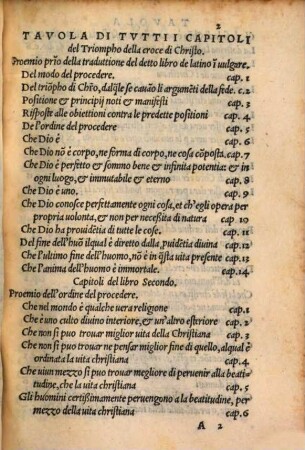 2
TAVOLA DI TVTTI I CAPITOLI
del Triompho della croce di Christo.
Proemio prīo della traduttione del detto libro de latino ī uulgare.
Del modo del procedere. cap. 1
Del triōpho di Chrō, dalq̄le se cauāo li argumēti della fede. c.2
Positione & principij noti & manifesti cap. 3
Risposte alle obiettioni contra le predette positioni cap. 4.
De l'ordine del procedere cap. 5
Che Dio é cap. 6
Che Dio nō è corpo, ne forma di corpo, ne cosa cōposta. cap. 7
Che Dio è perfetto & sommo bene & infinita potentia: & in
ogni luogo, & immutabile & eterno cap. 8
Che Dio è uno. cap. 9
Che Dio conosce perfettamente ogni cosa, et ch'egli opera per
propria uolonta, & non per necessita di natura cap. 10
Che Dio ha prouidētia di tutte le cose. cap. 11
Del fine dell'huō ilqual è diretto dalla, puidētia diuina cap. 12
Che l'ultimo fine dell'huomo, nō è in q̄sta uita presente cap. 13
Che l'anima dell'huomo è immortale. cap. 14.
Capitoli del libro Secondo.
Proemio dell'ordine del procedere.
Che nel mondo è qualche uera religione cap. 1
Che è uno culto diuino interiore, & un'altro estriore cap. 2
Che non si puo trouar miglior uita della Christiana cap. 3
Che non si puo trouar ne pensar miglior fine di quello, alqual é
ordinata la uita christiana cap. 4.
Che niun mezzo si puo trouar megliore di peruenir alla beati-
tudine, che la uita christiana cap. 5
Gli huomini certißimamente peruengono a la beatitudine, per
mezzo della uita christiana cap. 6
A 2